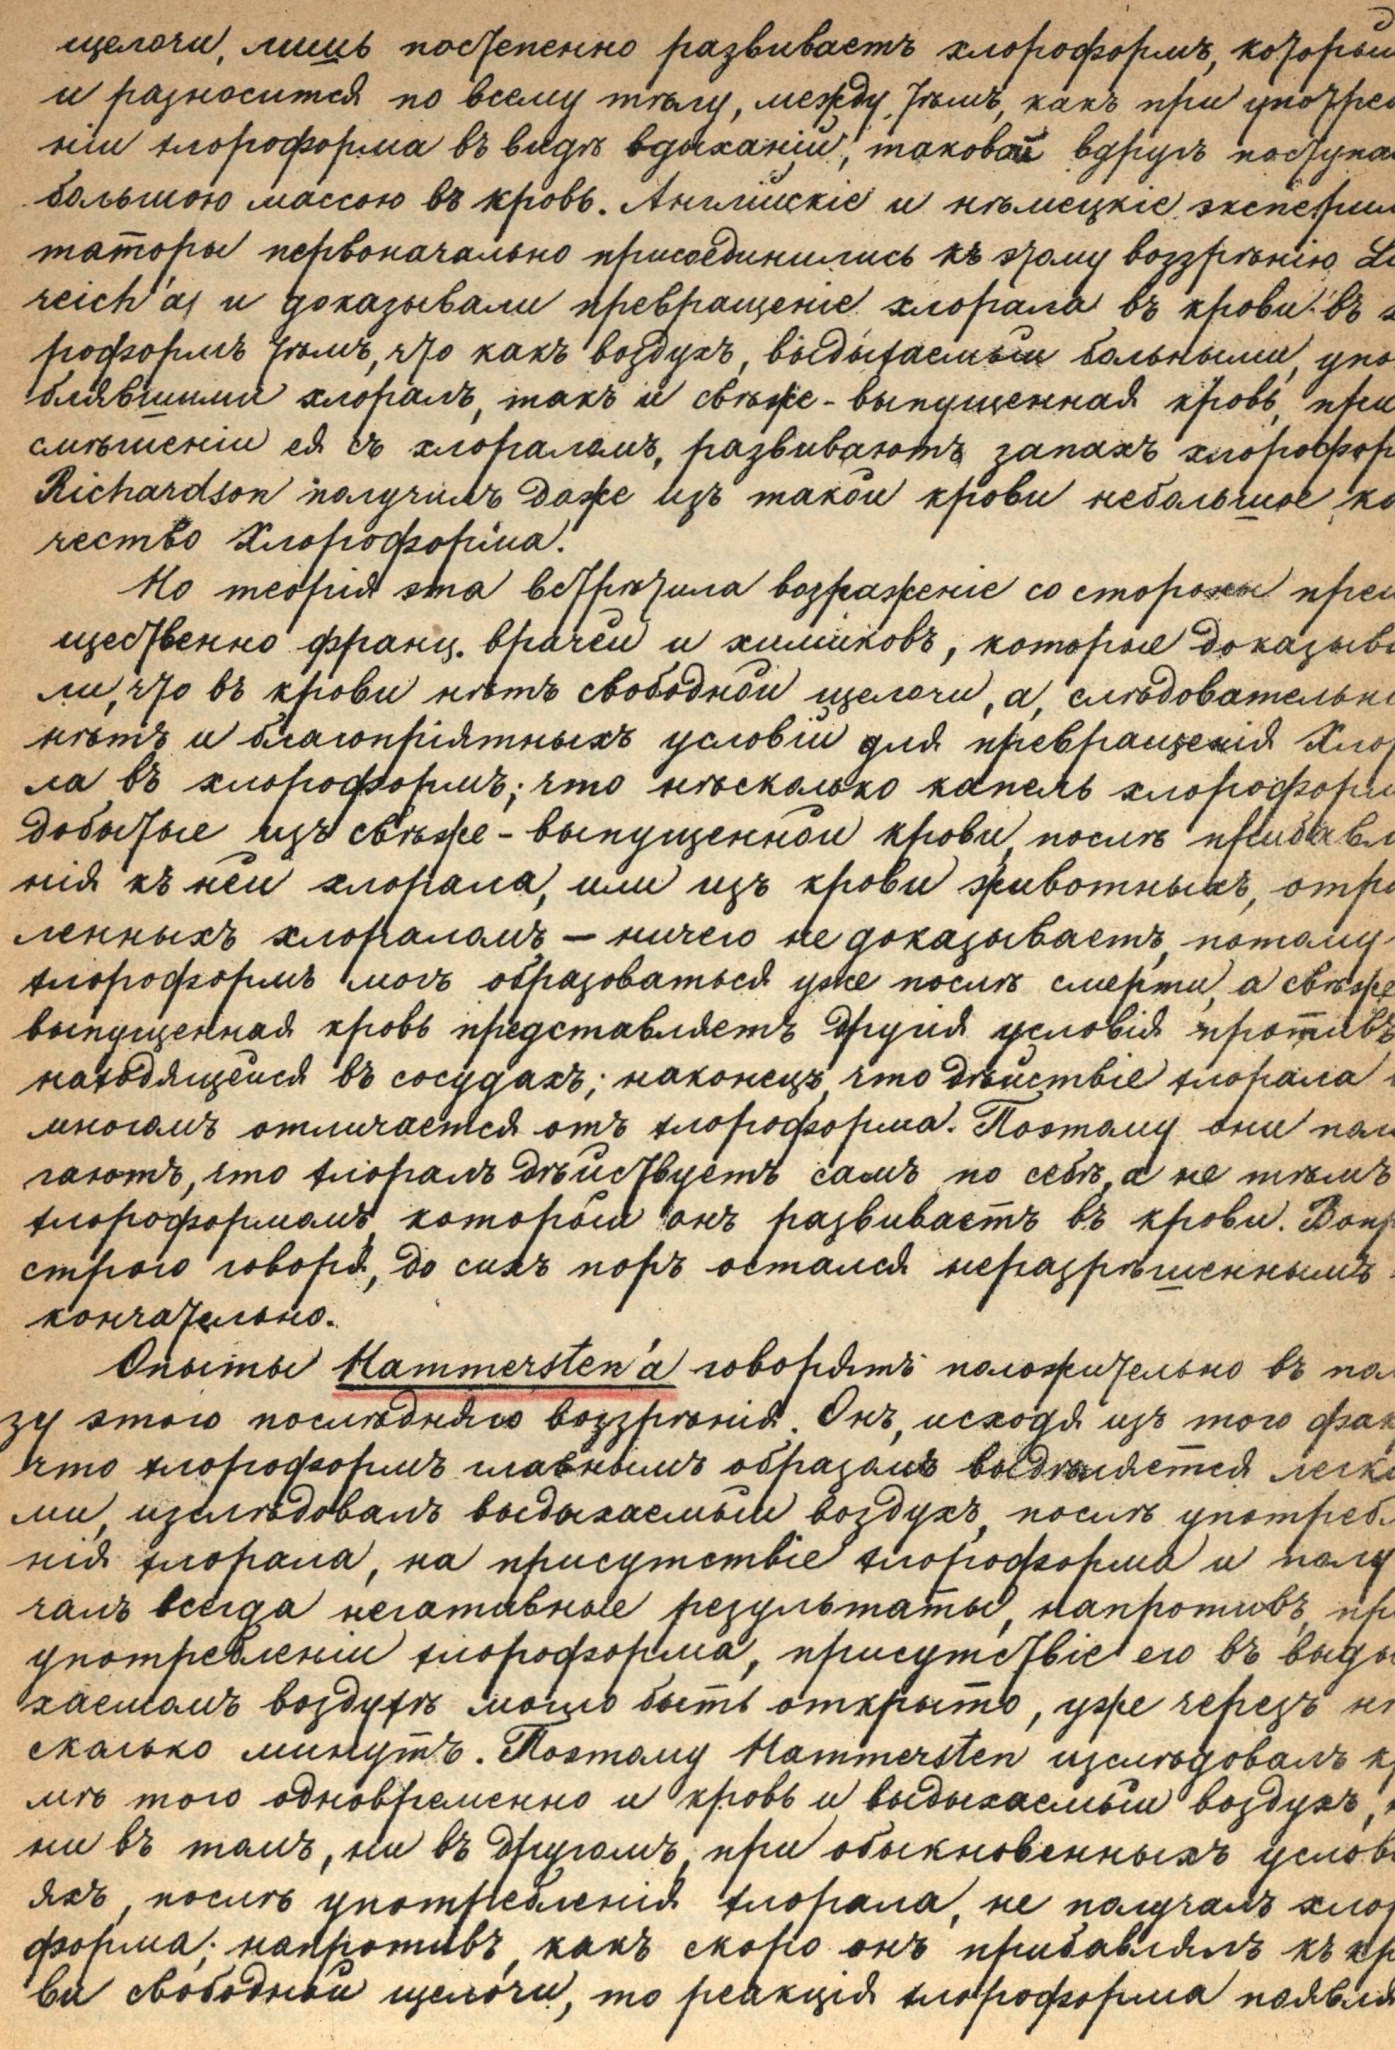 щелочи, лишь постепенно развиваетъ хлороформъ, который
и разносится по всему тѣлу, между тѣмъ, какъ при употреб
ніи хлороформа въ видѣ вдыханій, таковой вдругъ поступа
большою массою въ кровь. Англійскіе и нѣмецкіе эксперим
таторы первоначально присоединились къ этому воззрѣнію Li
reich'a, и доказывали превращеніе хлорала въ крови въ х
роформъ тѣмъ, что какъ воздухъ, выдыхаемый больными, упо
блявшими хлоралъ, такъ и свѣже-выпущенная кровь, при
смѣшеніи ея съ хлораломъ, развиваютъ запахъ хлорофор
Richardson получилъ даже изъ такой крови небольшое ко
чество Хлороформа.
Но теорія эта встрѣтила возраженіе со стороны преи
щественно франц. врачей и химиковъ, которые доказыва
ли, что въ крови нѣтъ свободной щелочи, а, слѣдовательно
нѣтъ и благопріятныхъ условій для превращенія Хлор
ла въ хлороформъ; что нѣсколько капель хлороформ
добытые изъ свѣже-выпущенной крови, послѣ прибавл
нія къ ней хлорала, или изъ крови животныхъ, отра
ленныхъ хлораломъ — ничего не доказываетъ, потому
хлороформъ могъ образоваться уже послѣ смерти, а свѣже
выпущенная кровь представляетъ другія условія противъ
находящейся въ сосудахъ; наконецъ, что дѣйствіе хлорала
многимъ отличается отъ хлороформа. Поэтому они пола
гаютъ, что хлоралъ дѣйствуетъ самъ по себѣ, а не тѣмъ
хлороформомъ, который онъ развиваетъ въ крови. Вопр
строго говоря, до сихъ поръ остался неразрѣшеннымъ
кончательно.
Опыты Hammersten'a говорятъ положительно въ пол
зу этого послѣдняго воззрѣнія. Онъ, исходя изъ того фак
что хлороформъ главнымъ образомъ выдѣляется легки
ми, изслѣдовалъ выдыхаемый воздухъ, послѣ употребл
нія хлорала, на присутствіе хлороформа и полу
чалъ всегда негативные результаты, напротивъ, пр
употребленіи хлороформа, присутствіе его въ выды
хаемомъ воздухѣ могло быть открыто, уже черезъ нѣ
сколько минутъ. Поэтому Hammersten изслѣдовалъ кр
мѣ того одновременно и кровь и выдыхаемый воздухъ,
ни въ томъ, ни въ другомъ, при обыкновенныхъ услові
яхъ, послѣ употребленія хлорала, не получалъ хлор
форма; напротивъ, какъ скоро онъ прибавлялъ къ кр
ви свободной щелочи, то реакція хлороформа появля